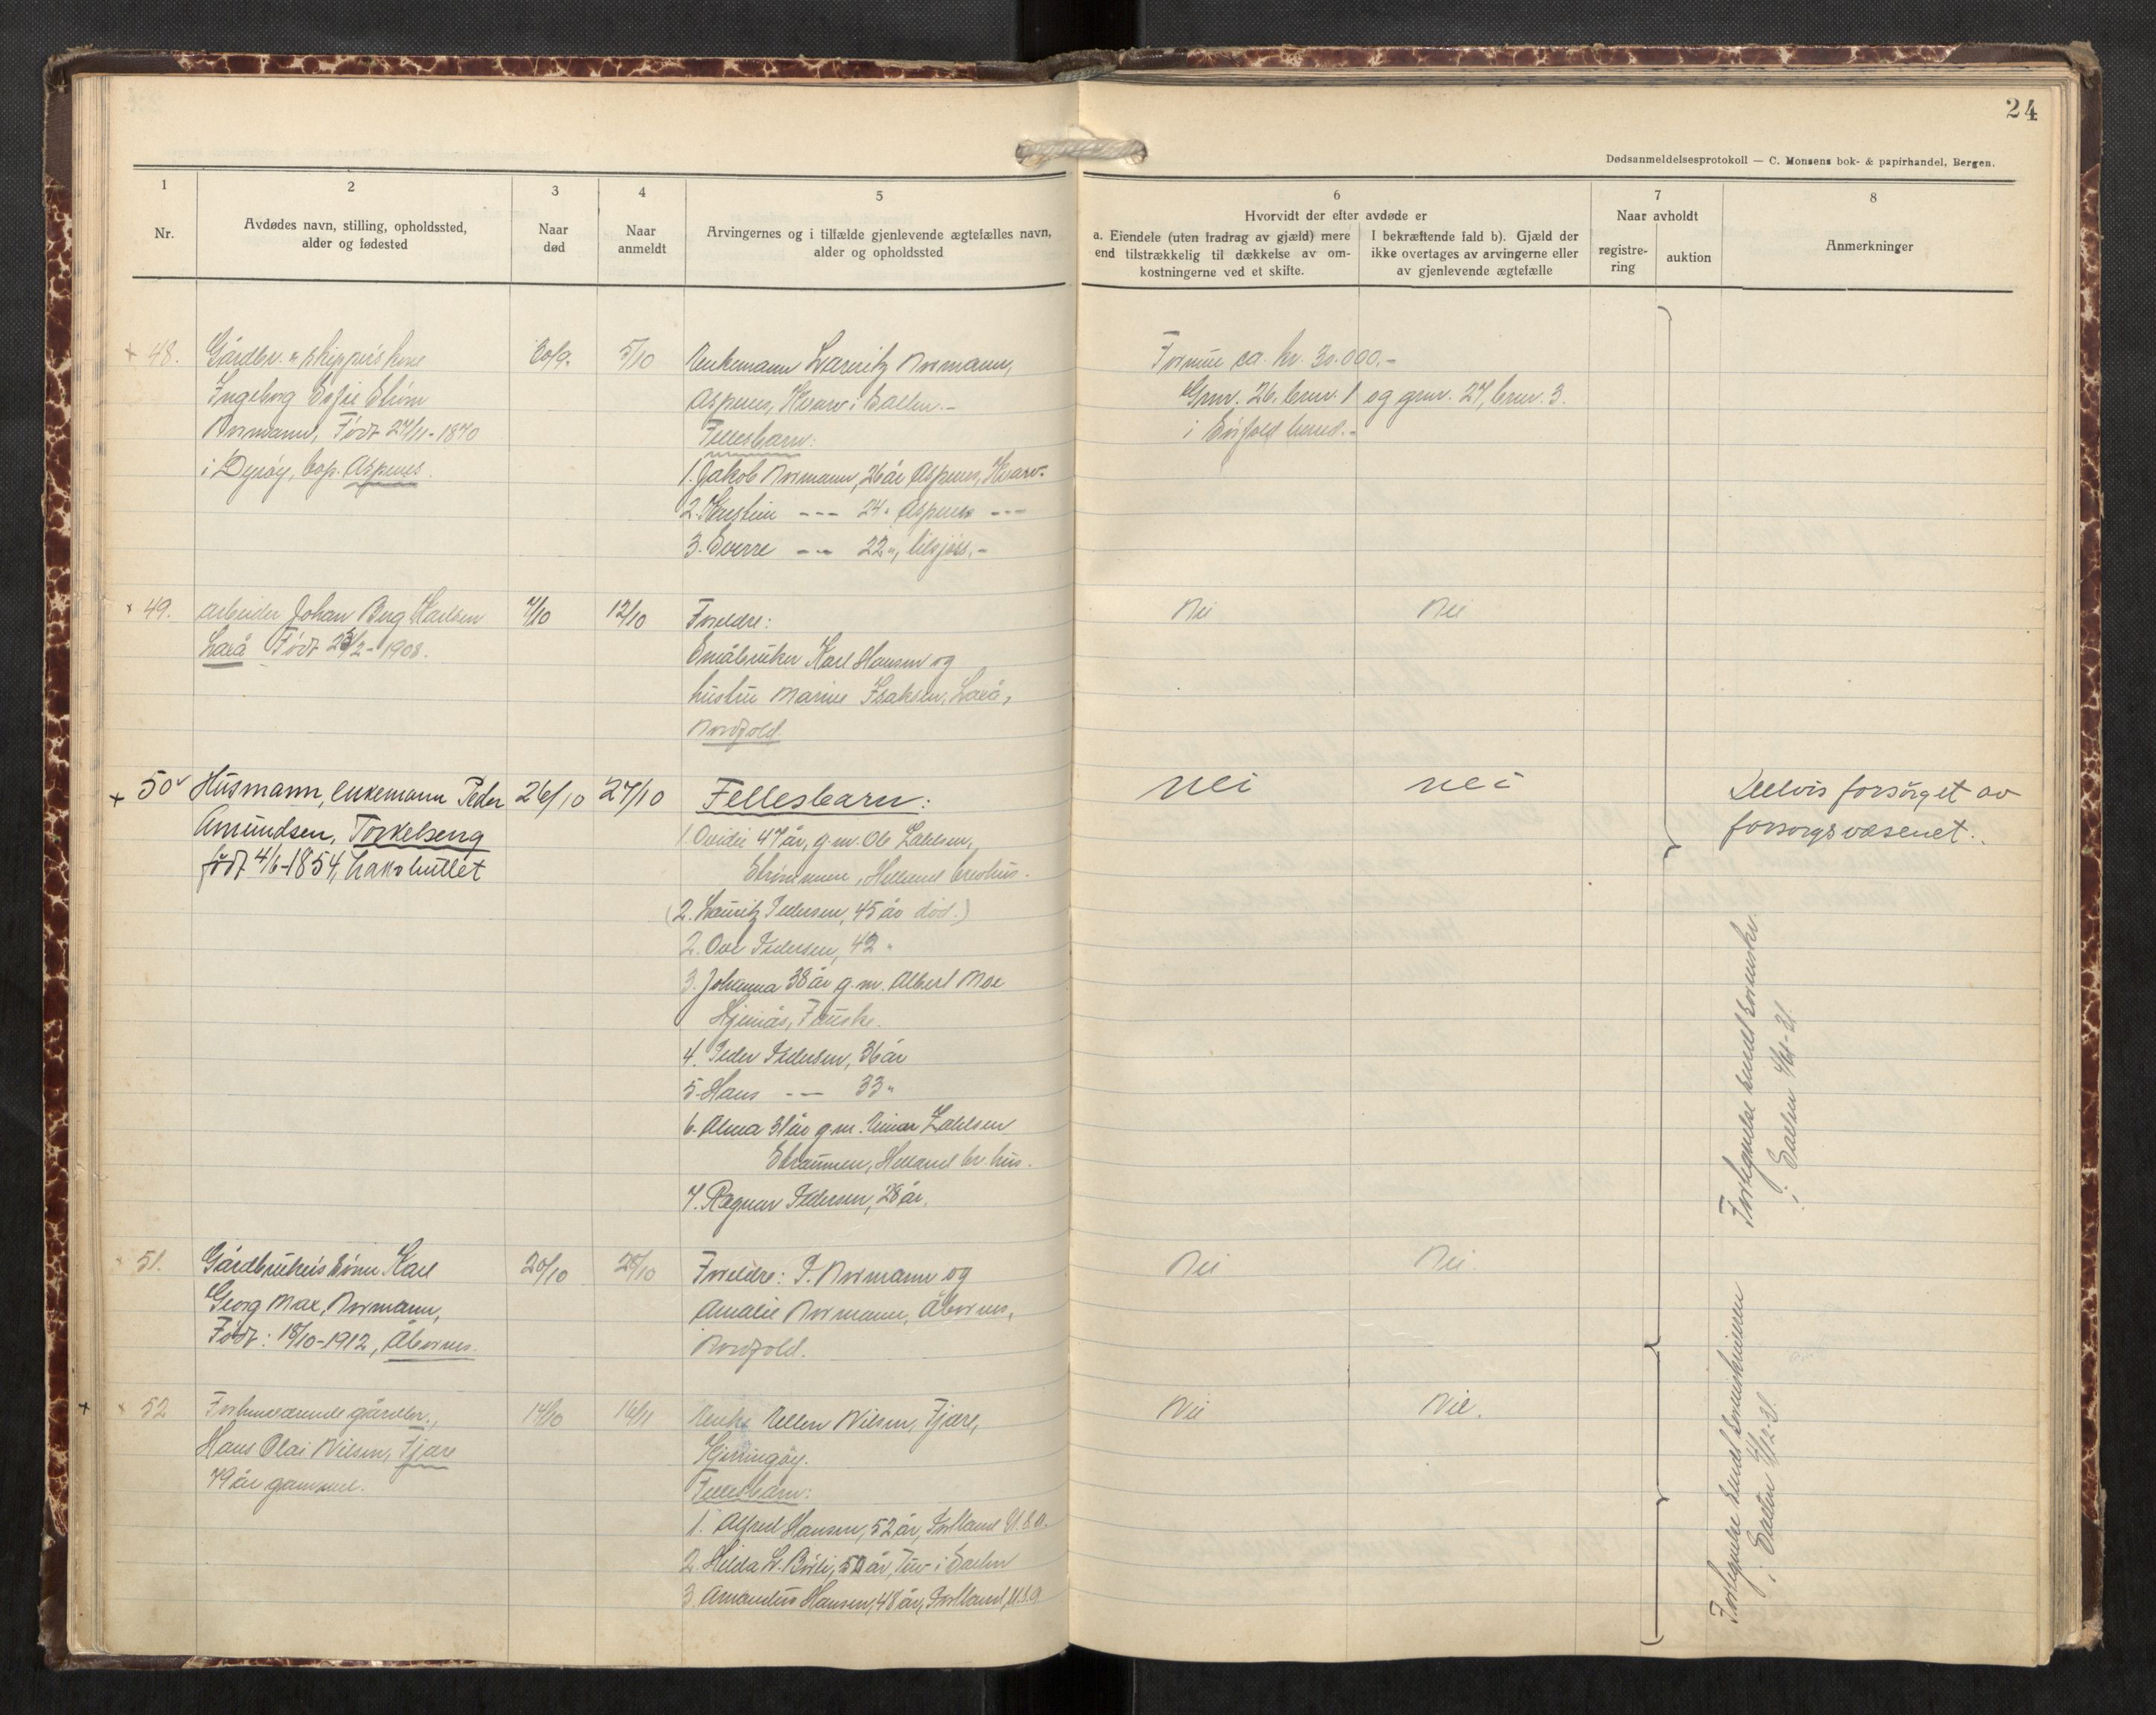 24
Dødsanmeldelsesprotokoll — C. Monsens bok- & papirhandel, Bergen.
1
Nr.
2
Avdødes navn, stilling, opholdssted,
alder og fødested
3
Naar
død
4
Naar
anmeldt
5
Arvingernes og i tilfælde gjenlevende ægtefælles navn,
alder og opholdssted
6
Hvorvidt der efter avdøde er
a. Eiendele (uten fradrag av gjæld) mere
end tilstrækkelig til dækkelse av om-
kostningerne ved et skifte.
I bekræftende fald b). Gjæld der
ikke overtages av arvingerne eller
av gjenlevende ægtefælle
7
Naar avholdt
registre-
ring
auktion
8
Anmerkninger
+ 48.
Gårdbr. & skippers kone
Ingeborg Sofie Strøm
Normann, Født 27/11-1870
i Dyrøy, bop. Aspenes.
30/9.
5/10
Enkemann Lauritz Normann,
Aspenes, Kvarv i Salten.-
Fellesbarn:
1. Jakob Normann, 26 år Aspenes, Kvarv.
2. Kristine --- 24 " Aspenes ---
3. Sverre --- 22 ", tilsjøss.-
Formue ca. kr. 30.000.-
Gnr. 26, bnr. 1 og gnr. 27, bnr. 3.
i Sørfold herred.-
x 49.
Arbeider Johan Berg Karlsen
Laxå Født 23/2-1908.
7/10
12/10
Foreldre:
Småbruker Karl Hansen og
hustru Marine Isaksen, Laxå,
Nordfold
Nei
Nei
+ 50
Husmann, enkemann Peder
Amundsen, Torkelseng
født 4/6-1854, Laksholtet
26/10
27/10
Fellesbarn:
1. Ovidie 47 år, g.m. Ole Zahlsen,
Straumen, Helland brevhus.
(2. Lauritz Pedersen, 45 år død.)
2. Ove Pedersen, 42 "
3. Johanna 38 år g.m. Albert Moe
Fauske.
4. Peder Pedersen, 36 år
5. Hans --- 33 "
6. Alma 31 år g.m. Einar Zahlsen
Straumen, Helland br.hus.
7. Ragnar Pedersen, 28 år.
nei
nei
Delvis forsørget av
forsorgsvæsenet.
Fortegnelse sendt sorenskr.
i Salten 4/11-31.
51.
Gårdbrukers sønn Karl
Georg Max, Normann,
Født: 18/10-1912, Åbornes.
20/10
28/10
Foreldre: P. Normann og
Amalie Normann, Åbornes,
Nordfold.
Nei
Nei.
+ x 52
Forhenværende gårdbr.,
Hans Olai Nilsen, Fjære
79 år gammel.
14/10
16/11
Enke Ellen Nilsen, Fjære,
Kjerringøy.
Fellesbarn:
1. Alfred Hansen, 52 år, Portland U.S.A.
2. Hilda 50 år, Tuv i Salten
3. Amandus Hansen, 48 år, Portland, U.S.A
Nei
Nei.
Fortegnelse sendt sorenskriveren
i Salten 4/12-31.